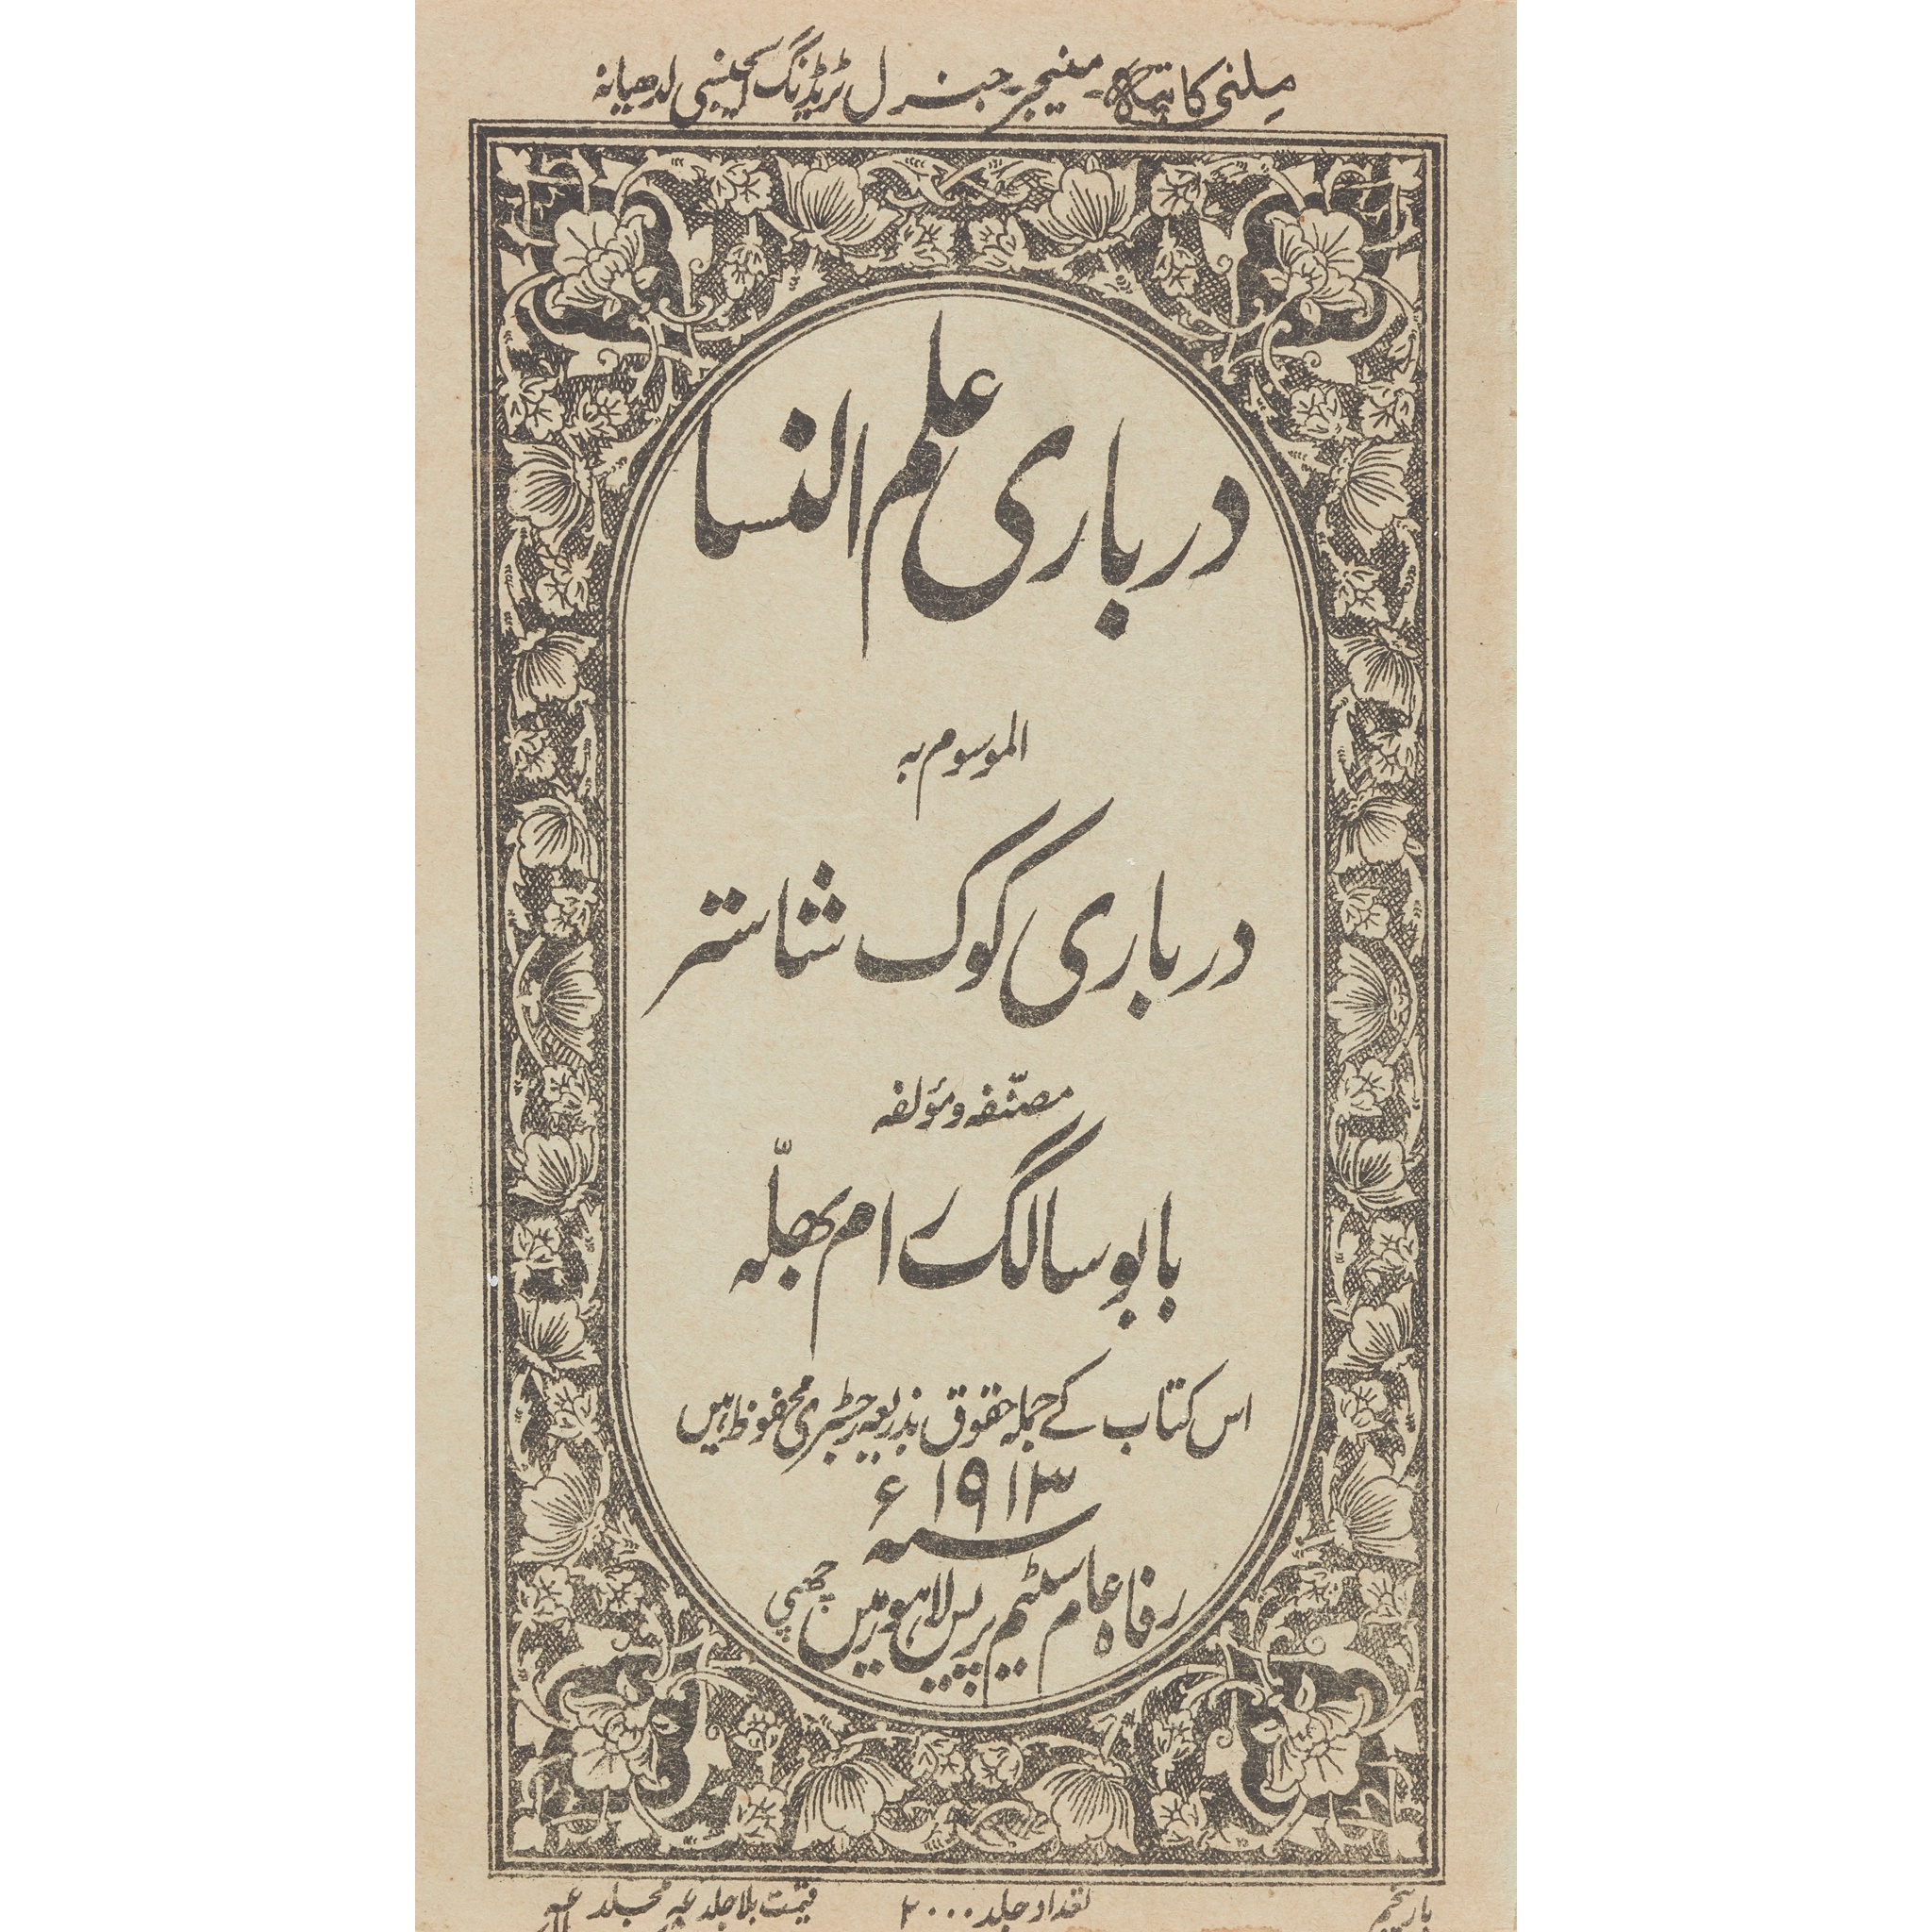 ملنے کا پتہ۔ مینجر۔ جنرل ٹریڈنگ ایجنسی لدھیانہ
درباری علم النسا
الموسوم بہ
درباری کوک شاستر
مصنّفہ و مؤلفہ
بابو سالگ رام بھلّہ
اس کتاب کے جملہ حقوق بذریعہ رجسٹری محفوظ ہیں
سنہ ۱۹۱۳ ء
رفاہ عام سٹیم پریس لاہور میں چھپی
بار پنجم تعداد جلد ۲۰۰۰ قیمت بلا جلد مجلد